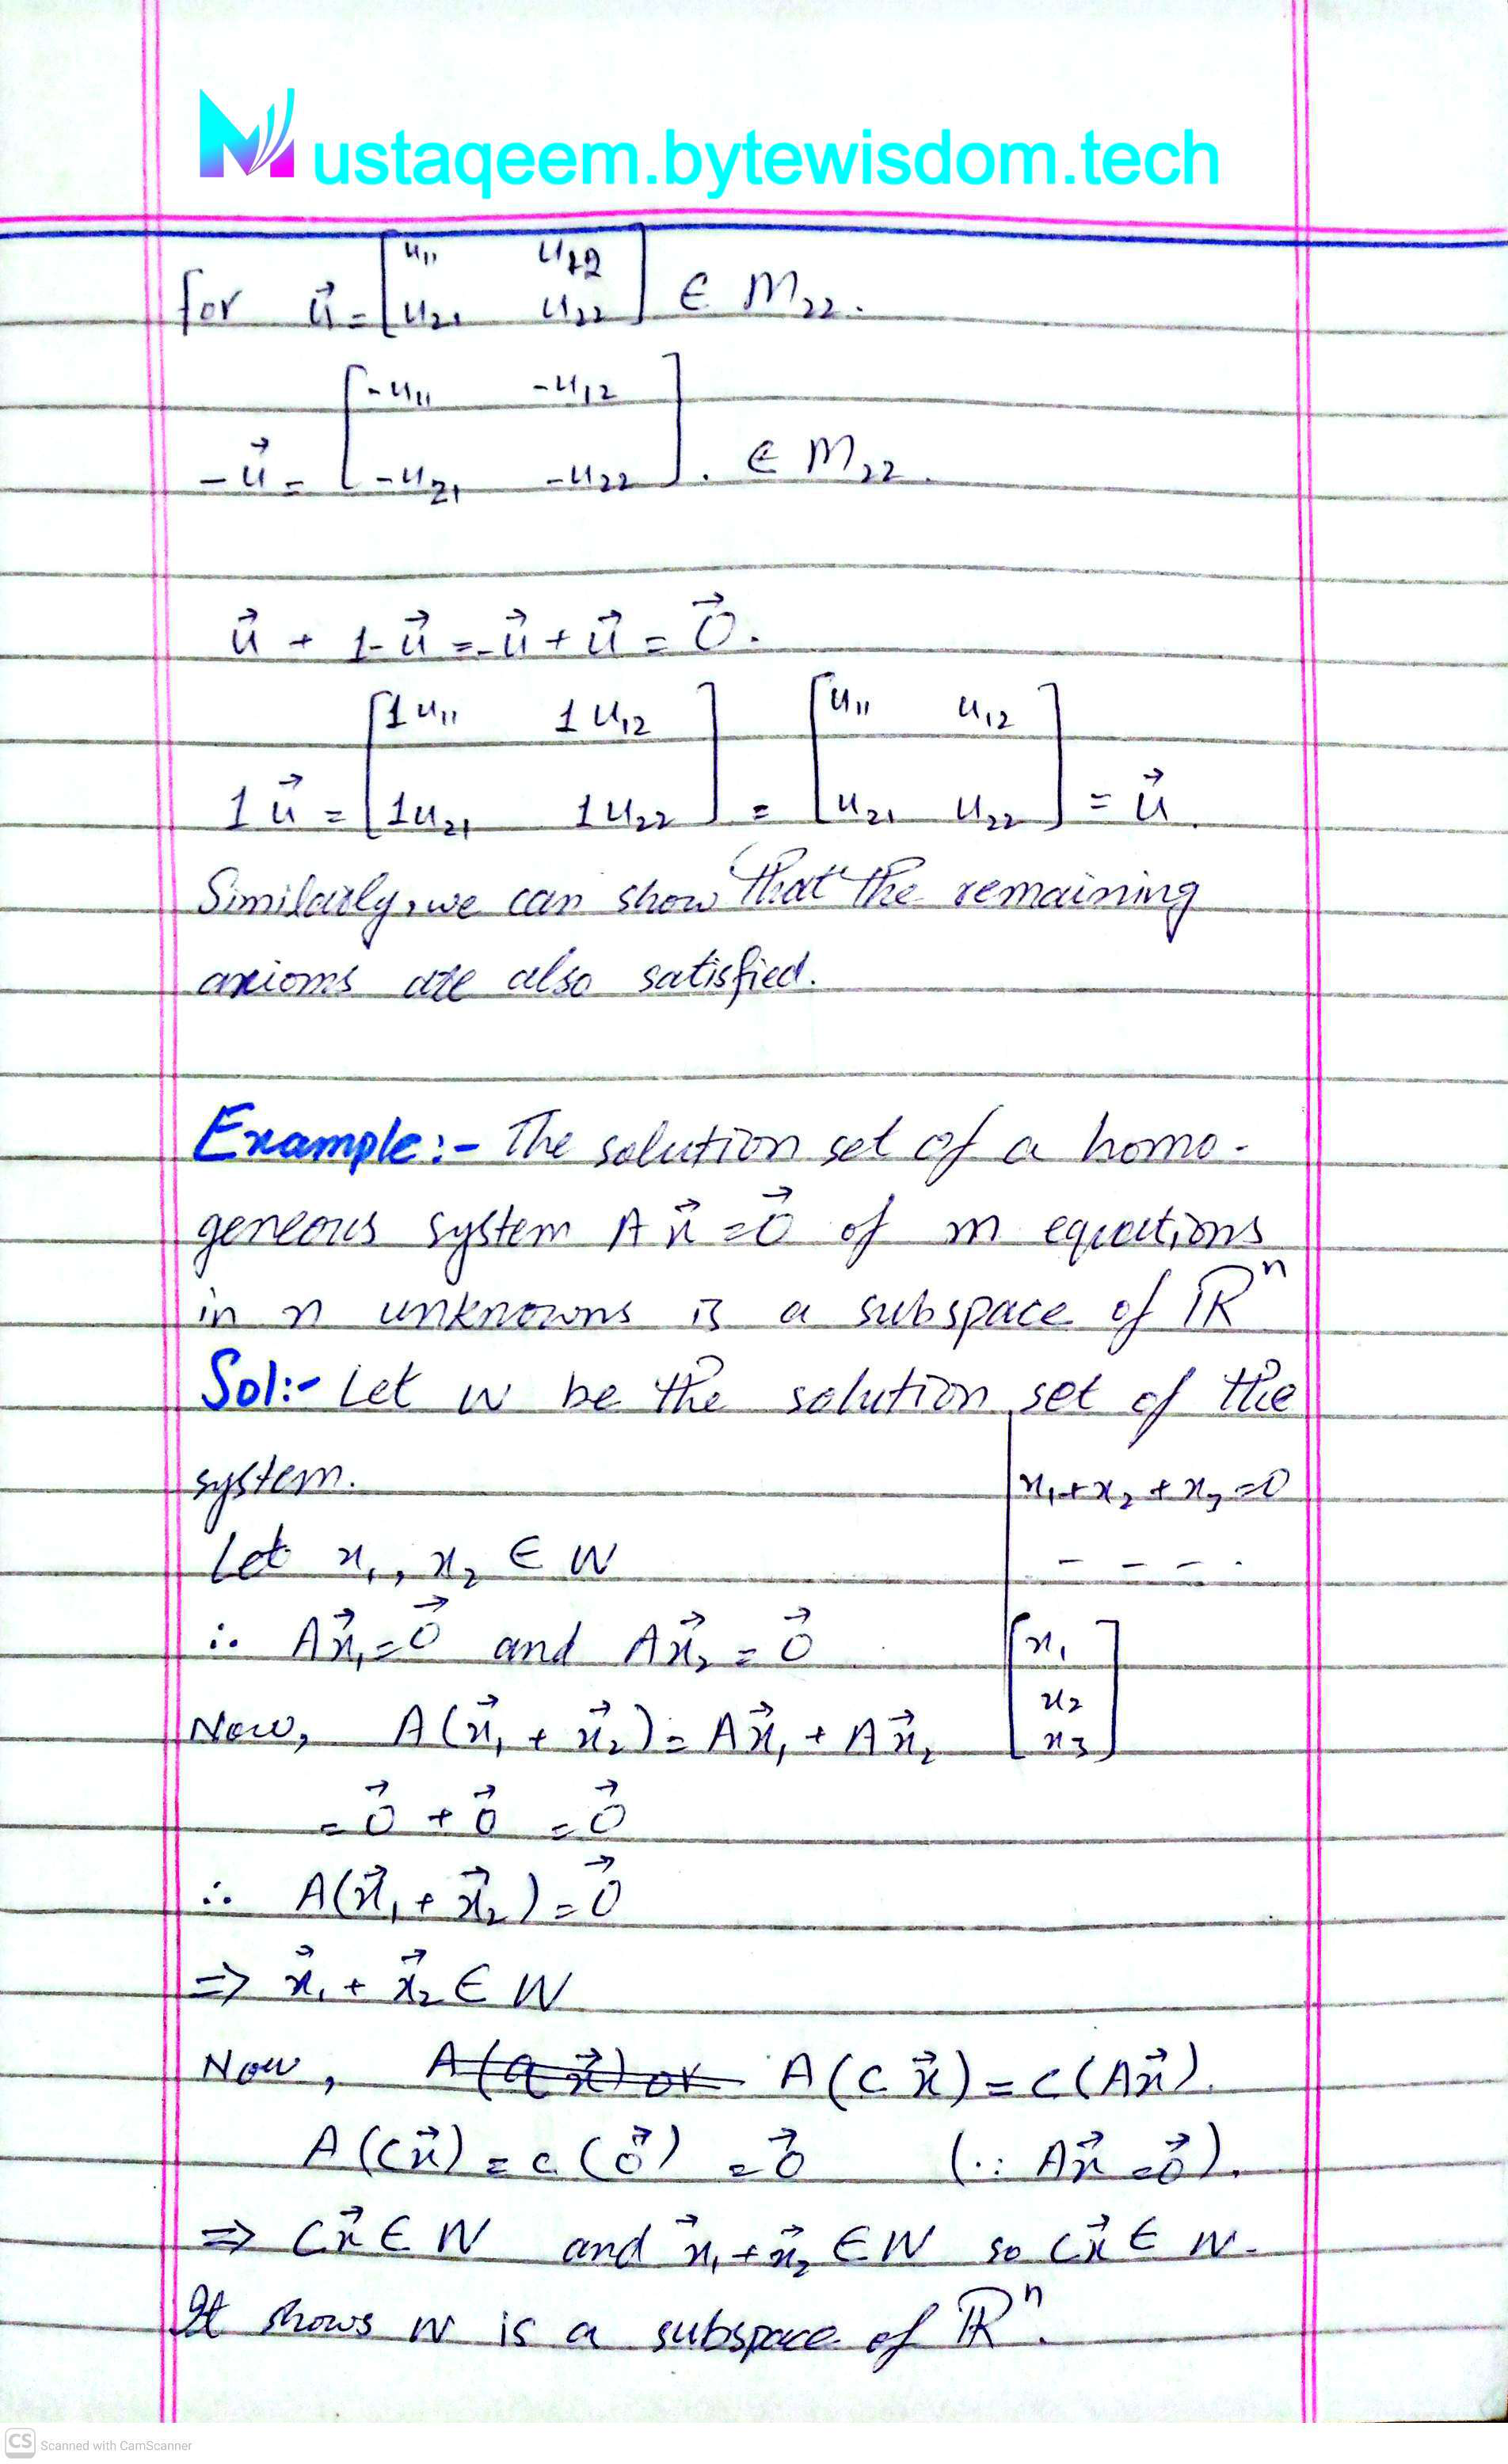 Mustaqeem.bytewisdom.tech
for u⃗ = [u₁₁ u₁₂
u₂₁ u₂₂] ∈ M₂₂.
-u⃗ = [-u₁₁ -u₁₂
-u₂₁ -u₂₂]. ∈ M₂₂.
u⃗ + 1-u⃗ = -u⃗ + u⃗ = 0⃗.
1u⃗ = [1u₁₁ 1u₁₂
1u₂₁ 1u₂₂] = [u₁₁ u₁₂
u₂₁ u₂₂] = u⃗.
Similarly, we can show that the remaining
axioms are also satisfied.
Example:- The solution set of a homo-
geneous system A x⃗ = 0⃗ of m equations
in n unknowns is a subspace of ℝⁿ
Sol:- Let W be the solution set of the
system.
x₁ + x₂ + x₃ = 0
- - - -
[x₁
x₂
x₃]
Let x₁, x₂ ∈ W
∴ Ax⃗₁ = 0⃗ and Ax⃗₂ = 0⃗
Now, A(x⃗₁ + x⃗₂) = Ax⃗₁ + Ax⃗₂
= 0⃗ + 0⃗ = 0⃗
∴ A(x⃗₁ + x⃗₂) = 0⃗
⇒ x⃗₁ + x⃗₂ ∈ W
Now, A(c x⃗) = c(Ax⃗).
A(cx⃗) = c(0⃗) = 0⃗ (∵ Ax⃗ = 0⃗).
⇒ cx⃗ ∈ W and x⃗₁ + x⃗₂ ∈ W so cx⃗ ∈ W.
It shows W is a subspace of ℝⁿ.
CS Scanned with CamScanner